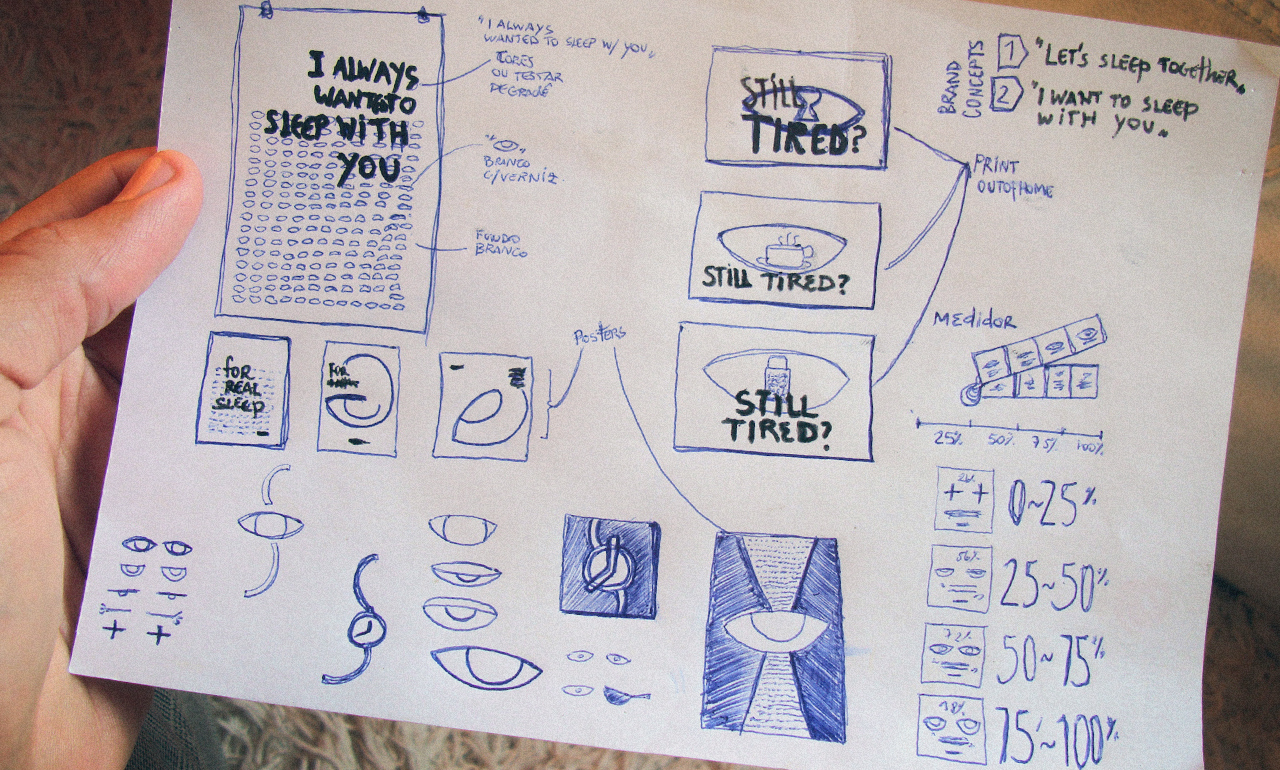 I ALWAYS
WANTED TO
SLEEP WITH
YOU
"I ALWAYS
WANTED TO SLEEP W/ YOU"
CORES
OU TESTAR
DEGRADÊ
BRANCO
C/VERNIZ.
FUNDO
BRANCO
STILL
TIRED?
STILL TIRED?
STILL
TIRED?
PRINT
OUTOFHOME
BRAND
CONCEPTS
1 "LET'S SLEEP TOGETHER"
2 "I WANT TO SLEEP
WITH YOU"
FOR
REAL
SLEEP
FOR
POSTERS
MEDIDOR
25% 50% 75% 100%
0~25%
56%
25~50%
72%
50~75%
75~100%